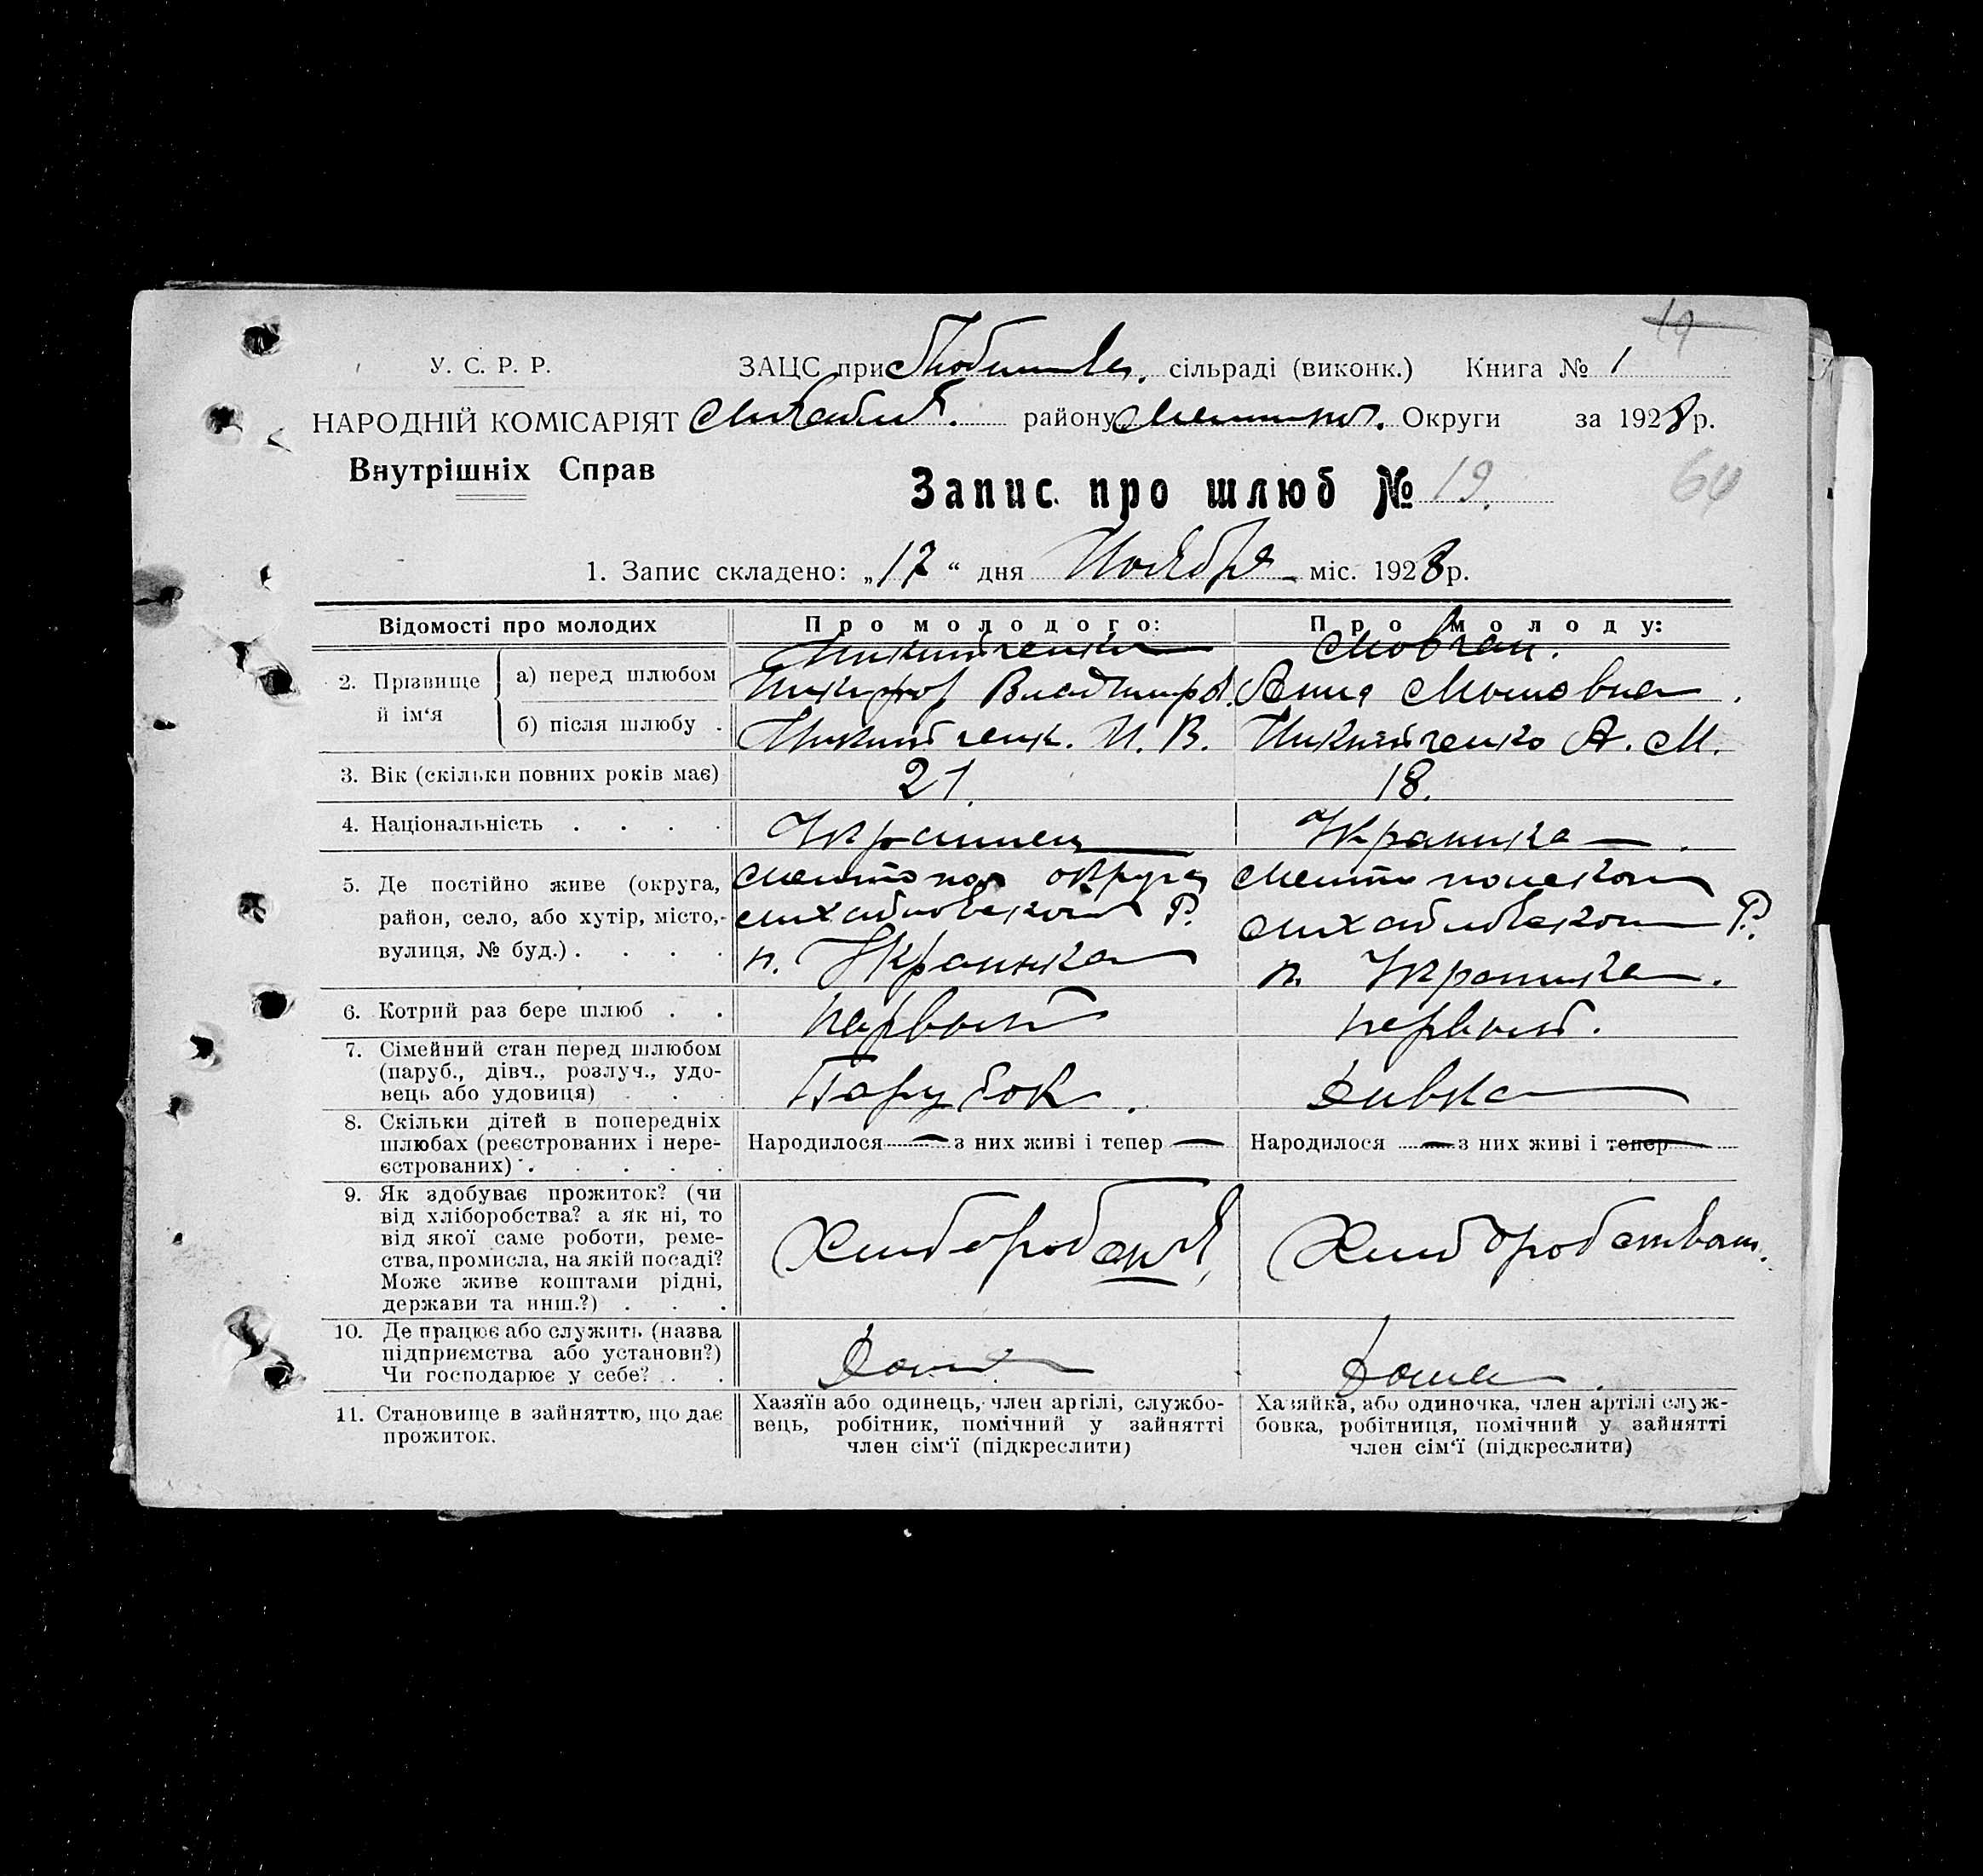 19
У. С. Р. Р.
ЗАЦС при Любимовск. сільраді (виконк.) Книга № 1
НАРОДНІЙ КОМІСАРІЯТ
Внутрішніх Справ
Михайлов. району Мелитоп. Округи за 1928 р.
Запис про шлюб № 19.
64
1. Запис складено: „17“ дня Ноября міс. 1928 р.
Відомості про молодих
Про молодого:
Про молоду:
2. Прізвище й ім‘я
а) перед шлюбом
Никитченко
Никифор Владимиров.
Мовчан.
Анна Мошовна.
б) після шлюбу .
Никитченк. Н. В.
Никитченко А. М.
3. Вік (скільки повних років має)
21.
18.
4. Національність . . . .
Украинец
Украинка.
5. Де постійно живе (округа,
район, село, або хутір, місто,
вулиця, № буд.) . . . .
Мелитопол округа
Михайловской Р.
п. Украинка
Мелитопольской
Михайловской Р.
п. Украинка.
6. Котрий раз бере шлюб . .
первый
первый.
7. Сімейний стан перед шлюбом
(паруб., дівч., розлуч., удо-
вець або удовиця) . . .
Парубок.
Дивка
8. Скільки дітей в попередніх
шлюбах (реєстрованих і нере-
єстрованих) . . . . .
Народилося — з них живі і тепер —
Народилося — з них живі і тепер —
9. Як здобуває прожиток? (чи
від хліборобства? а як ні, то
від якої саме роботи, реме-
ства, промисла, на якій посаді?
Може живе коштами рідні,
держави та инш.?) . . .
Хлиборобств
Хлиборобством.
10. Де працює або служить (назва
підприємства або установи?)
Чи господарює у себе? . .
Дома
Дома.
11. Становище в зайняттю, що дає
прожиток.
Хазяїн або одинець, член артілі, службо-
вець, робітник, помічний у зайнятті
член сім‘ї (підкреслити)
Хазяйка, або одиночка, член артілі служ-
бовка, робітниця, помічний у зайнятті
член сім‘ї (підкреслити)